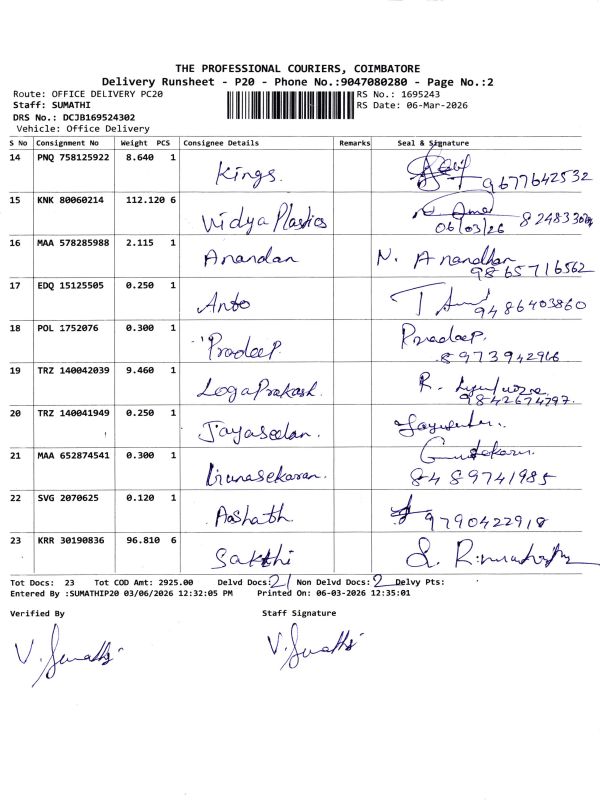 THE PROFESSIONAL COURIERS, COIMBATORE
Delivery Runsheet - P20 - Phone No.:9047080280 - Page No.:2
Route: OFFICE DELIVERY PC20
RS No.: 1695243
Staff: SUMATHI
RS Date: 06-Mar-2026
DRS No.: DCJB169524302
Vehicle: Office Delivery
S No Consignment No Weight PCS Consignee Details Remarks Seal & Signature
14 PNQ 758125922 8.640 1 Kings. 9677642532
15 KNK 80060214 112.120 6 Vidya Plastics
06/03/26
16 MAA 578285988 2.115 1 Anandan N. Anandhan
9865716562
17 EDQ 15125505 0.250 1 Anto 9486403860
18 POL 1752076 0.300 1 Pradeep. Pradeep.
8973942966
19 TRZ 140042039 9.460 1 LogaPrakash. R.
9842674797.
20 TRZ 140041949 0.250 1 Jayaseelan.
21 MAA 652874541 0.300 1
8489741985
22 SVG 2070625 0.120 1 Aashath 9790422918
23 KRR 30190836 96.810 6 Sakthi
Tot Docs: 23 Tot COD Amt: 2925.00 Delvd Docs: 21 Non Delvd Docs: 2 Delvy Pts:
Entered By :SUMATHIP20 03/06/2026 12:32:05 PM Printed On: 06-03-2026 12:35:01
Verified By Staff Signature
V. Sumathi V. Sumathi